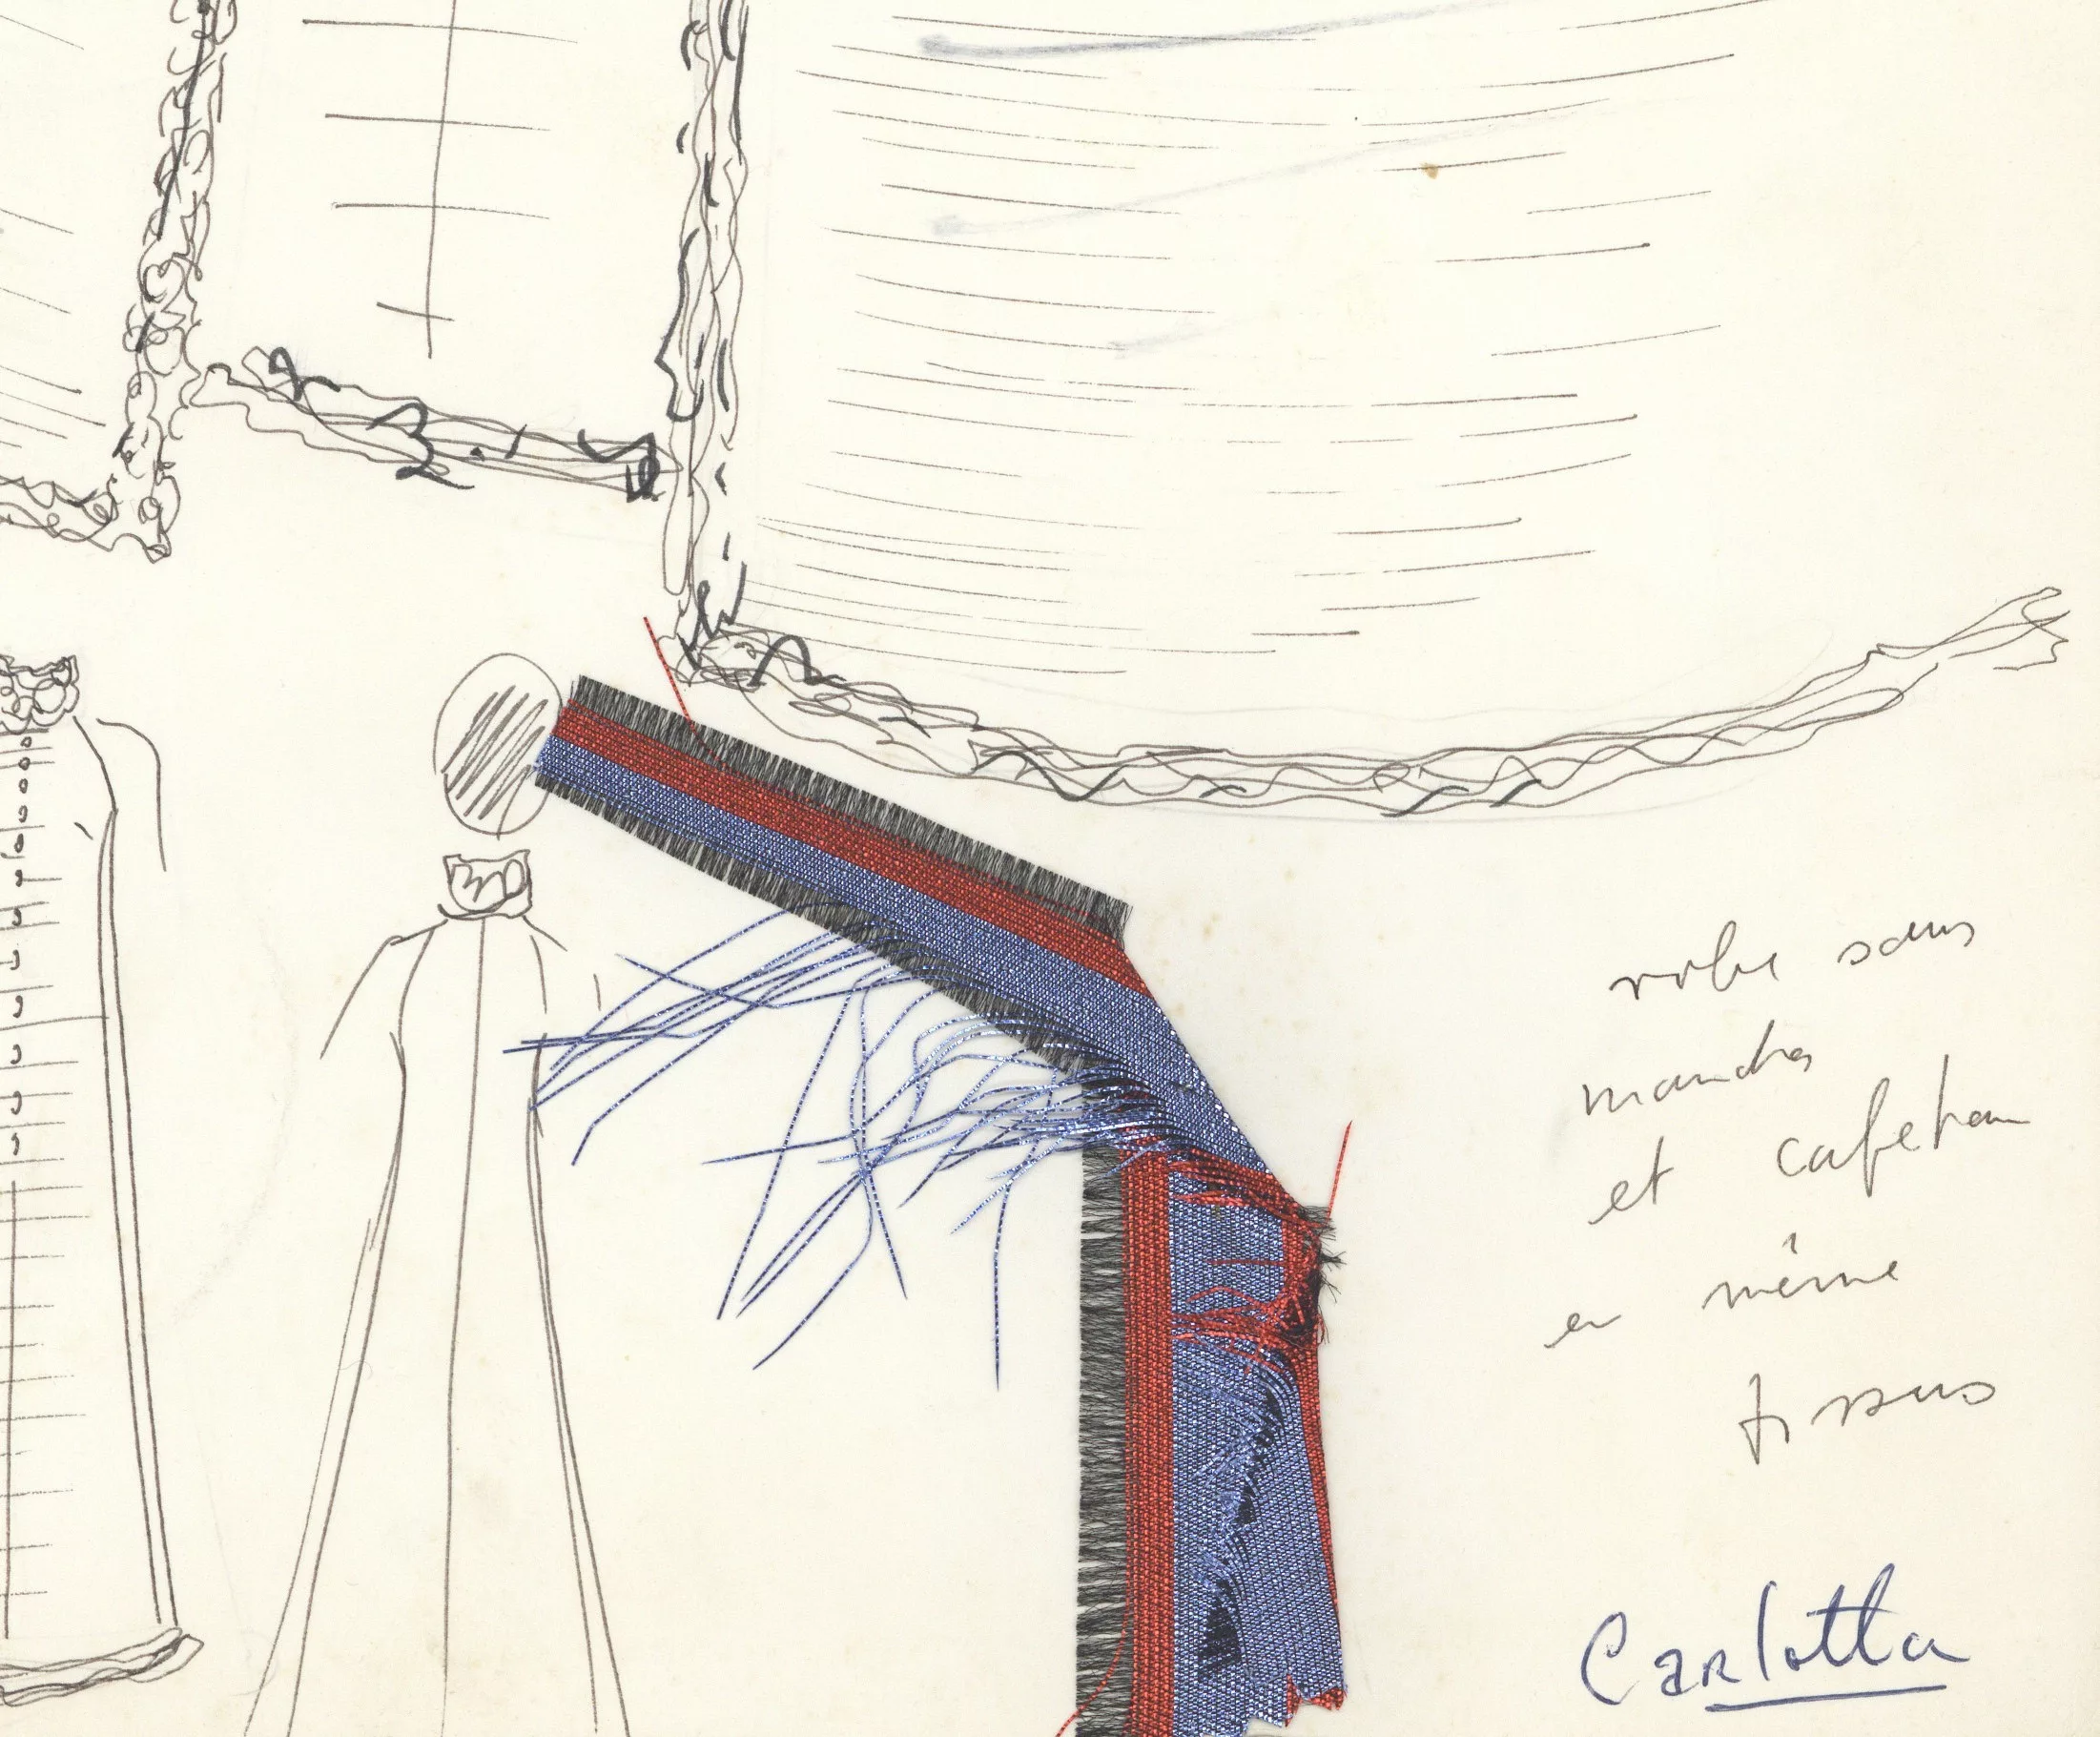 robe sans
manches
et cafetan
en même
tissus
Carlotta